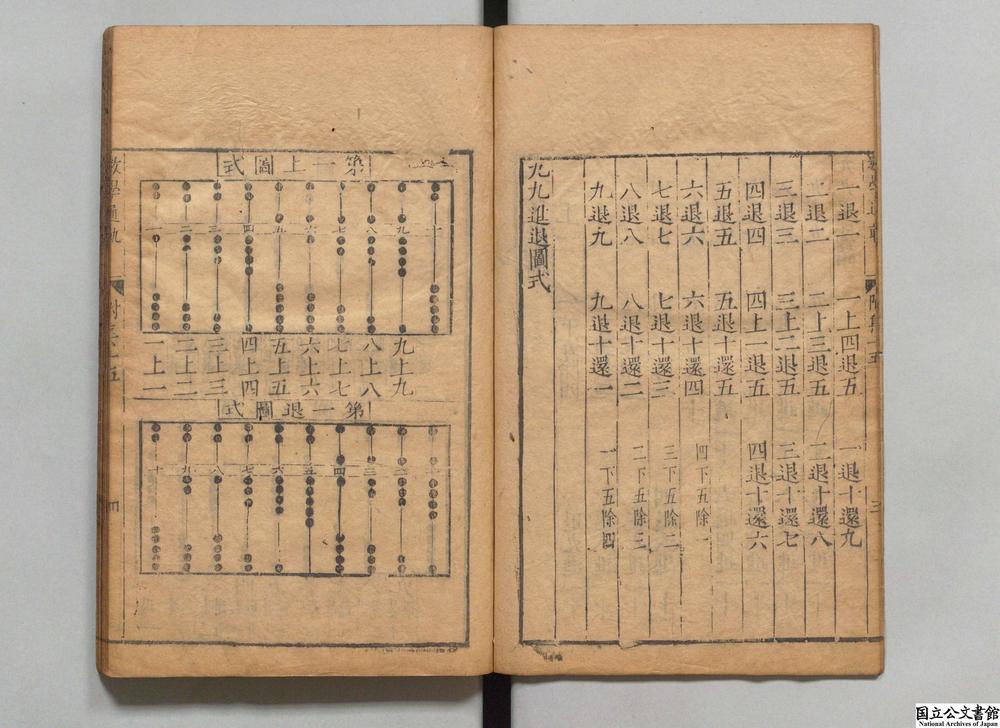 三
一退一 一上四退五 一退十還九
二退二 二上三退五 二退十還八
三退三 三上二退五 三退十還七
四退四 四上一退五 四退十還六
五退五 五退十還五
六退六 六退十還四 四下五除一
七退七 七退十還三 三下五除二
八退八 八退十還二 二下五除三
九退九 九退十還一 一下五除四
九九進退圖式
第一上圖式
十 九 八 七 六 五 四 三 二 一
九上九
八上八
七上七
六上六
五上五
四上四
三上三
二上二
一上一
第一退圖式
一 二 三 四 五 六 七 八 九 十
數學通軌
四
国立公文書館
National Archives of Japan